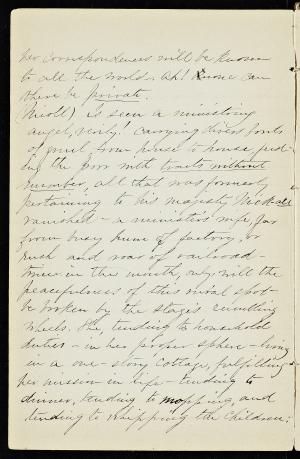 her correspondences will be known
to all the world. Ah! know can
there be private.
(Nicoll) is seen a ministering
angel, verily! Carrying divers fonts
of gruel from house to house, feed-
ing the poor with tracts without
number, all that was formerly
pertaining to his majesty Nick all
vanished – a minister's wife, far
from busy hum of factory, or
rush and roar of railroad –
train in this month, only will the
peacefulness of this rural spot
be broken by the stage's rumbling
wheels. She, tending to household
duties – in her proper sphere – living
in a one-story Cottage, fulfilling
her mission in life – tending to
dinner, tending to mopping, and
tending to whipping the children;